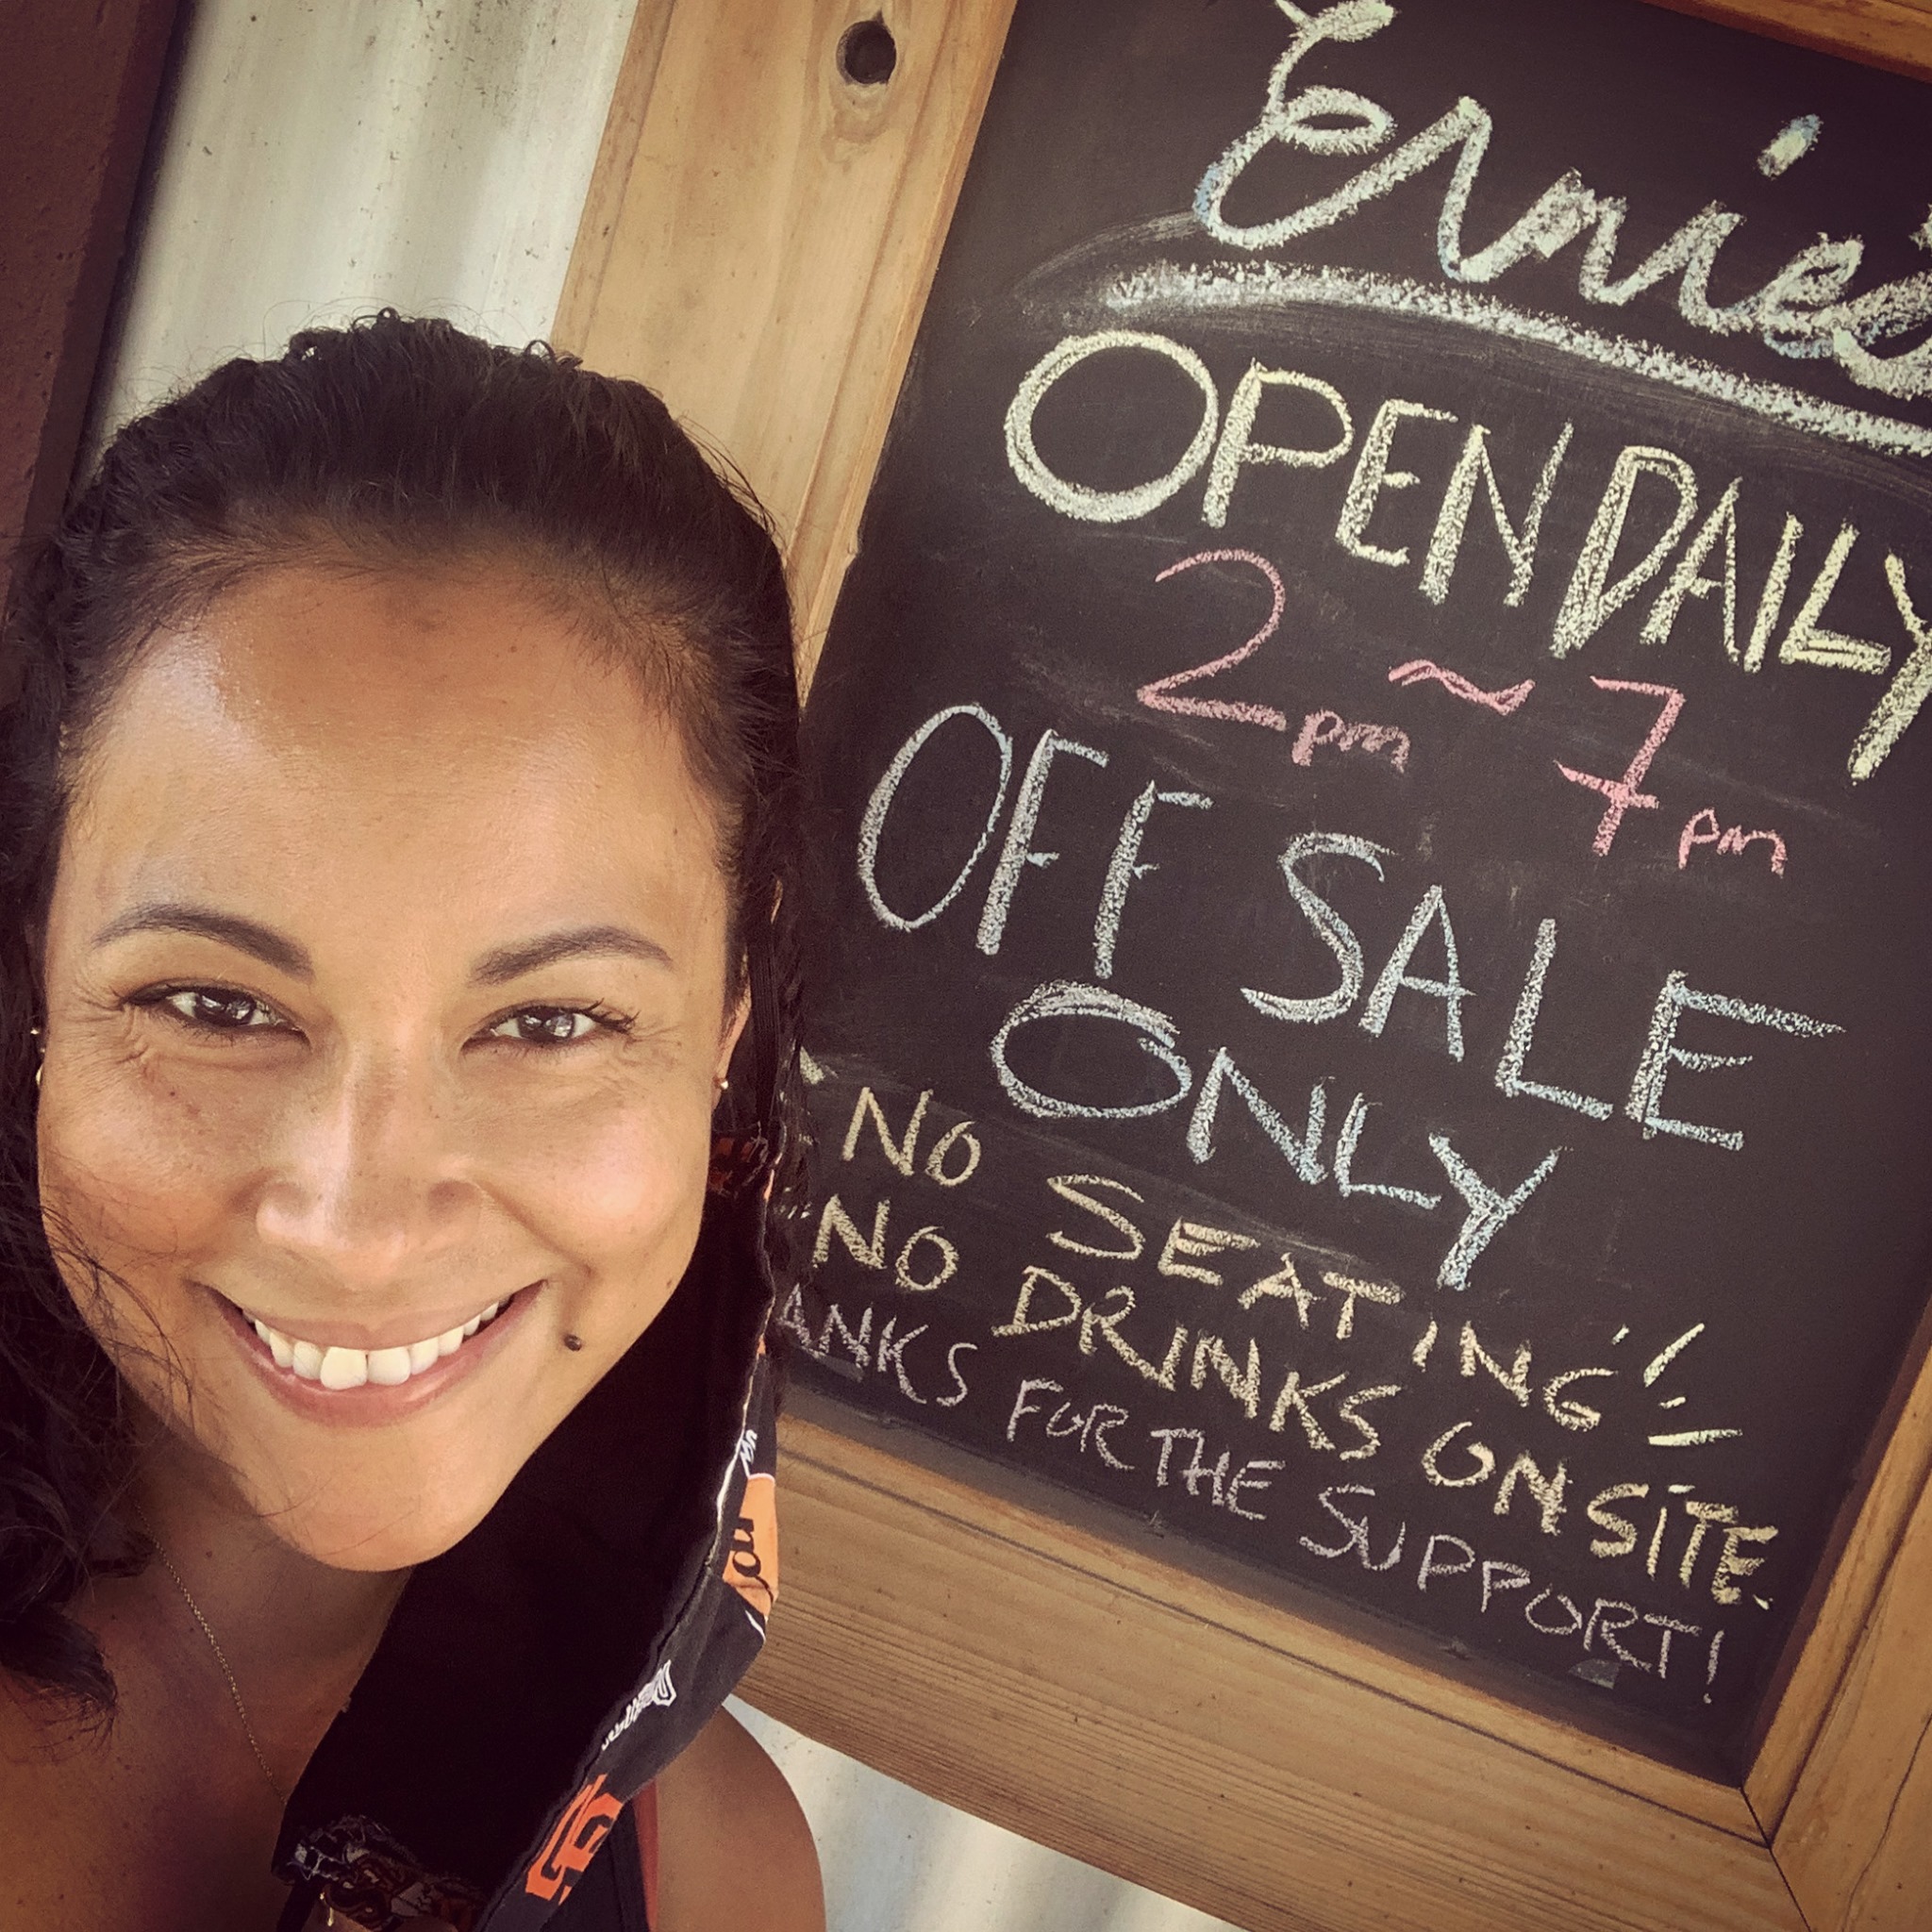 Ernie's
OPEN DAILY
2pm ~ 7pm
OFF SALE
ONLY
NO SEATING
NO DRINKS ON SITE.
ANKS FOR THE SUPPORT!